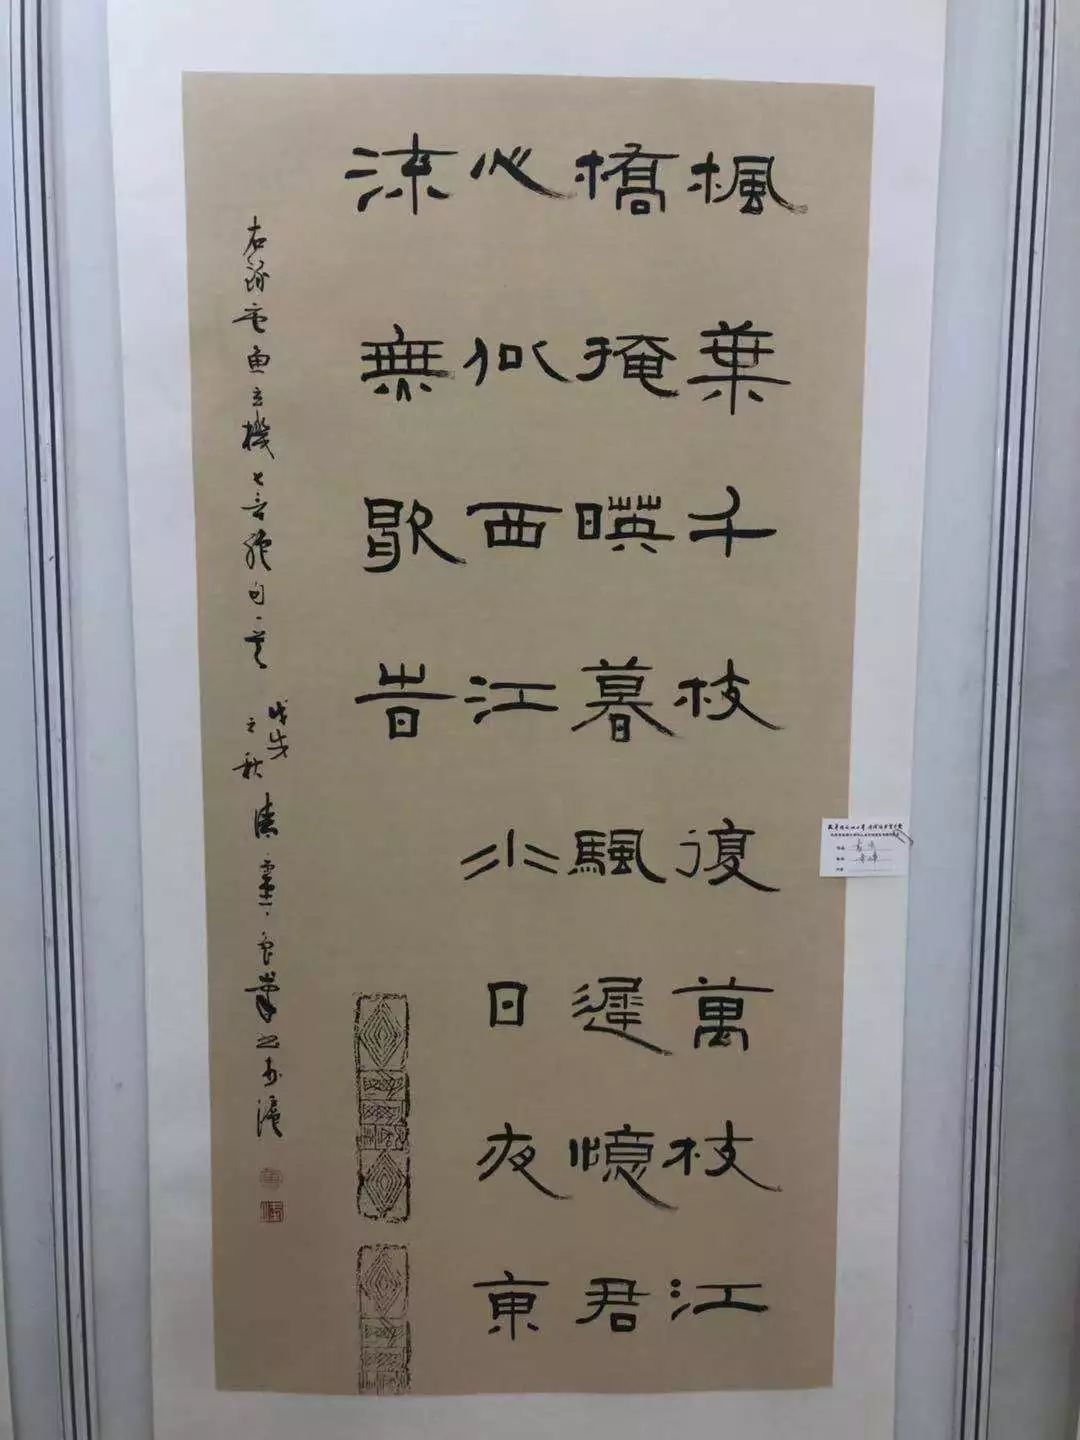 楓葉千枝復萬枝江
橋掩暎暮颿遲憶君
心似西江水日夜東
流無歇時
右錄唐魚玄機七言絕句一首
戊戌之秋